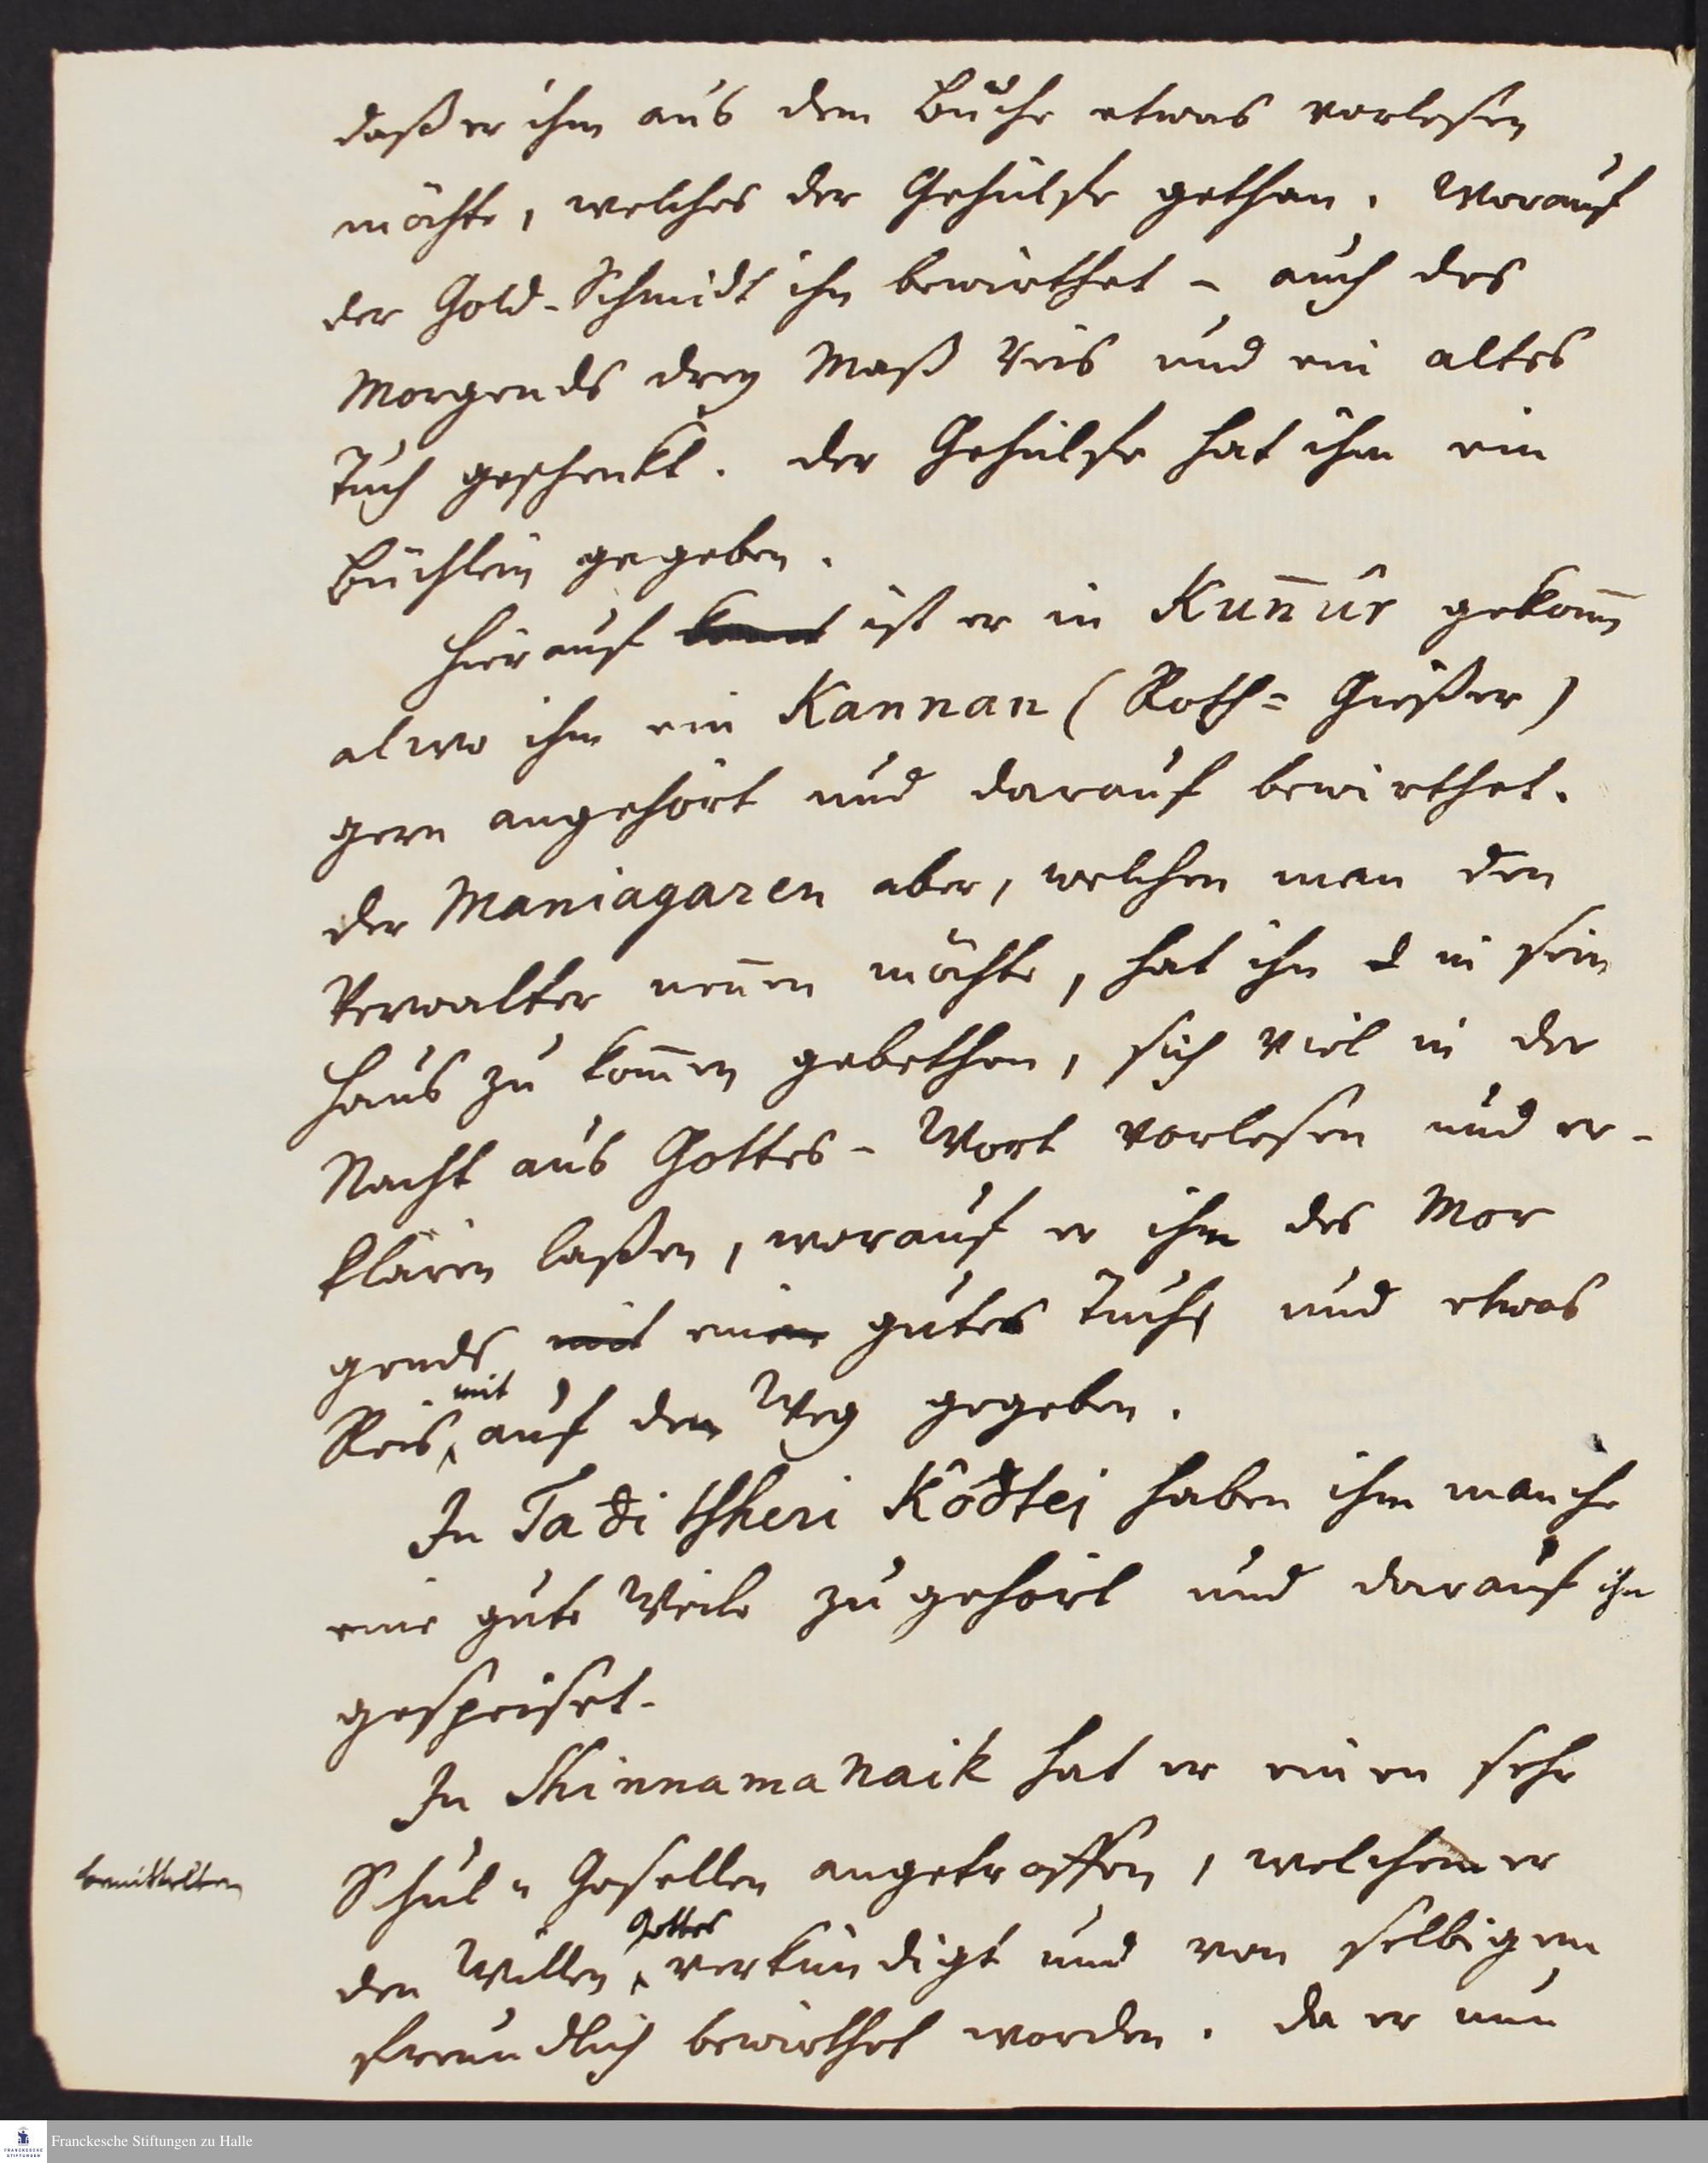 daß er ihm aus dem Buche etwas vorlesen
möchte, welches der Gehülfe gethan. Worauf
der Gold-Schmidt ihn bewirthet - auch des
Morgends drey Maß Reis und ein altes
Tuch geschenkt. Der Gehülfe hat ihm ein
Büchlein gegeben.
Hierauf ist er in Kun̄ûr gekom̄
alwo ihn ein Kannan (Roth= Gießer)
gern angehört und darauf bewirthet.
Der Maniagaren aber, welchen man den
Verwalter nen̄en möchte, hat ihn in sein
Haus zu kom̄en gebethen, sich viel in der
Nacht aus Gottes-Wort vorlesen und er-
klären laßen, worauf er ihm des Mor
gends mit ein gutes Tuch und etwas
Reis mit auf den Weg gegeben.
In Taditscheri Kôdtei haben ihm manche
eine gute Weile zugehört und darauf ihn
gespeiset.
In Shinnamanaik hat er einen sehr
bemittelten Schul-Gesellen angetroffen, welchem er
den Willen Gottes verkündigt und von selbigem
freundlich bewirthet worden. Da er nun
Franckesche Stiftungen zu Halle
FRANCKESCHE
STIFTUNGEN